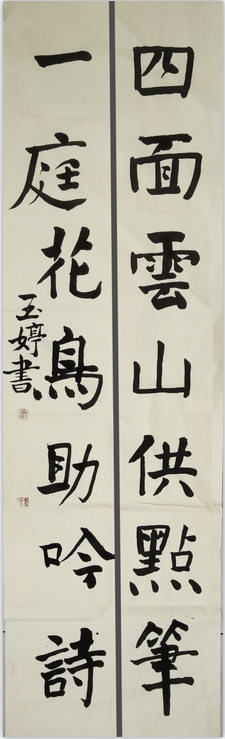 四面雲山供點筆
一庭花鳥助吟詩
玉婷書